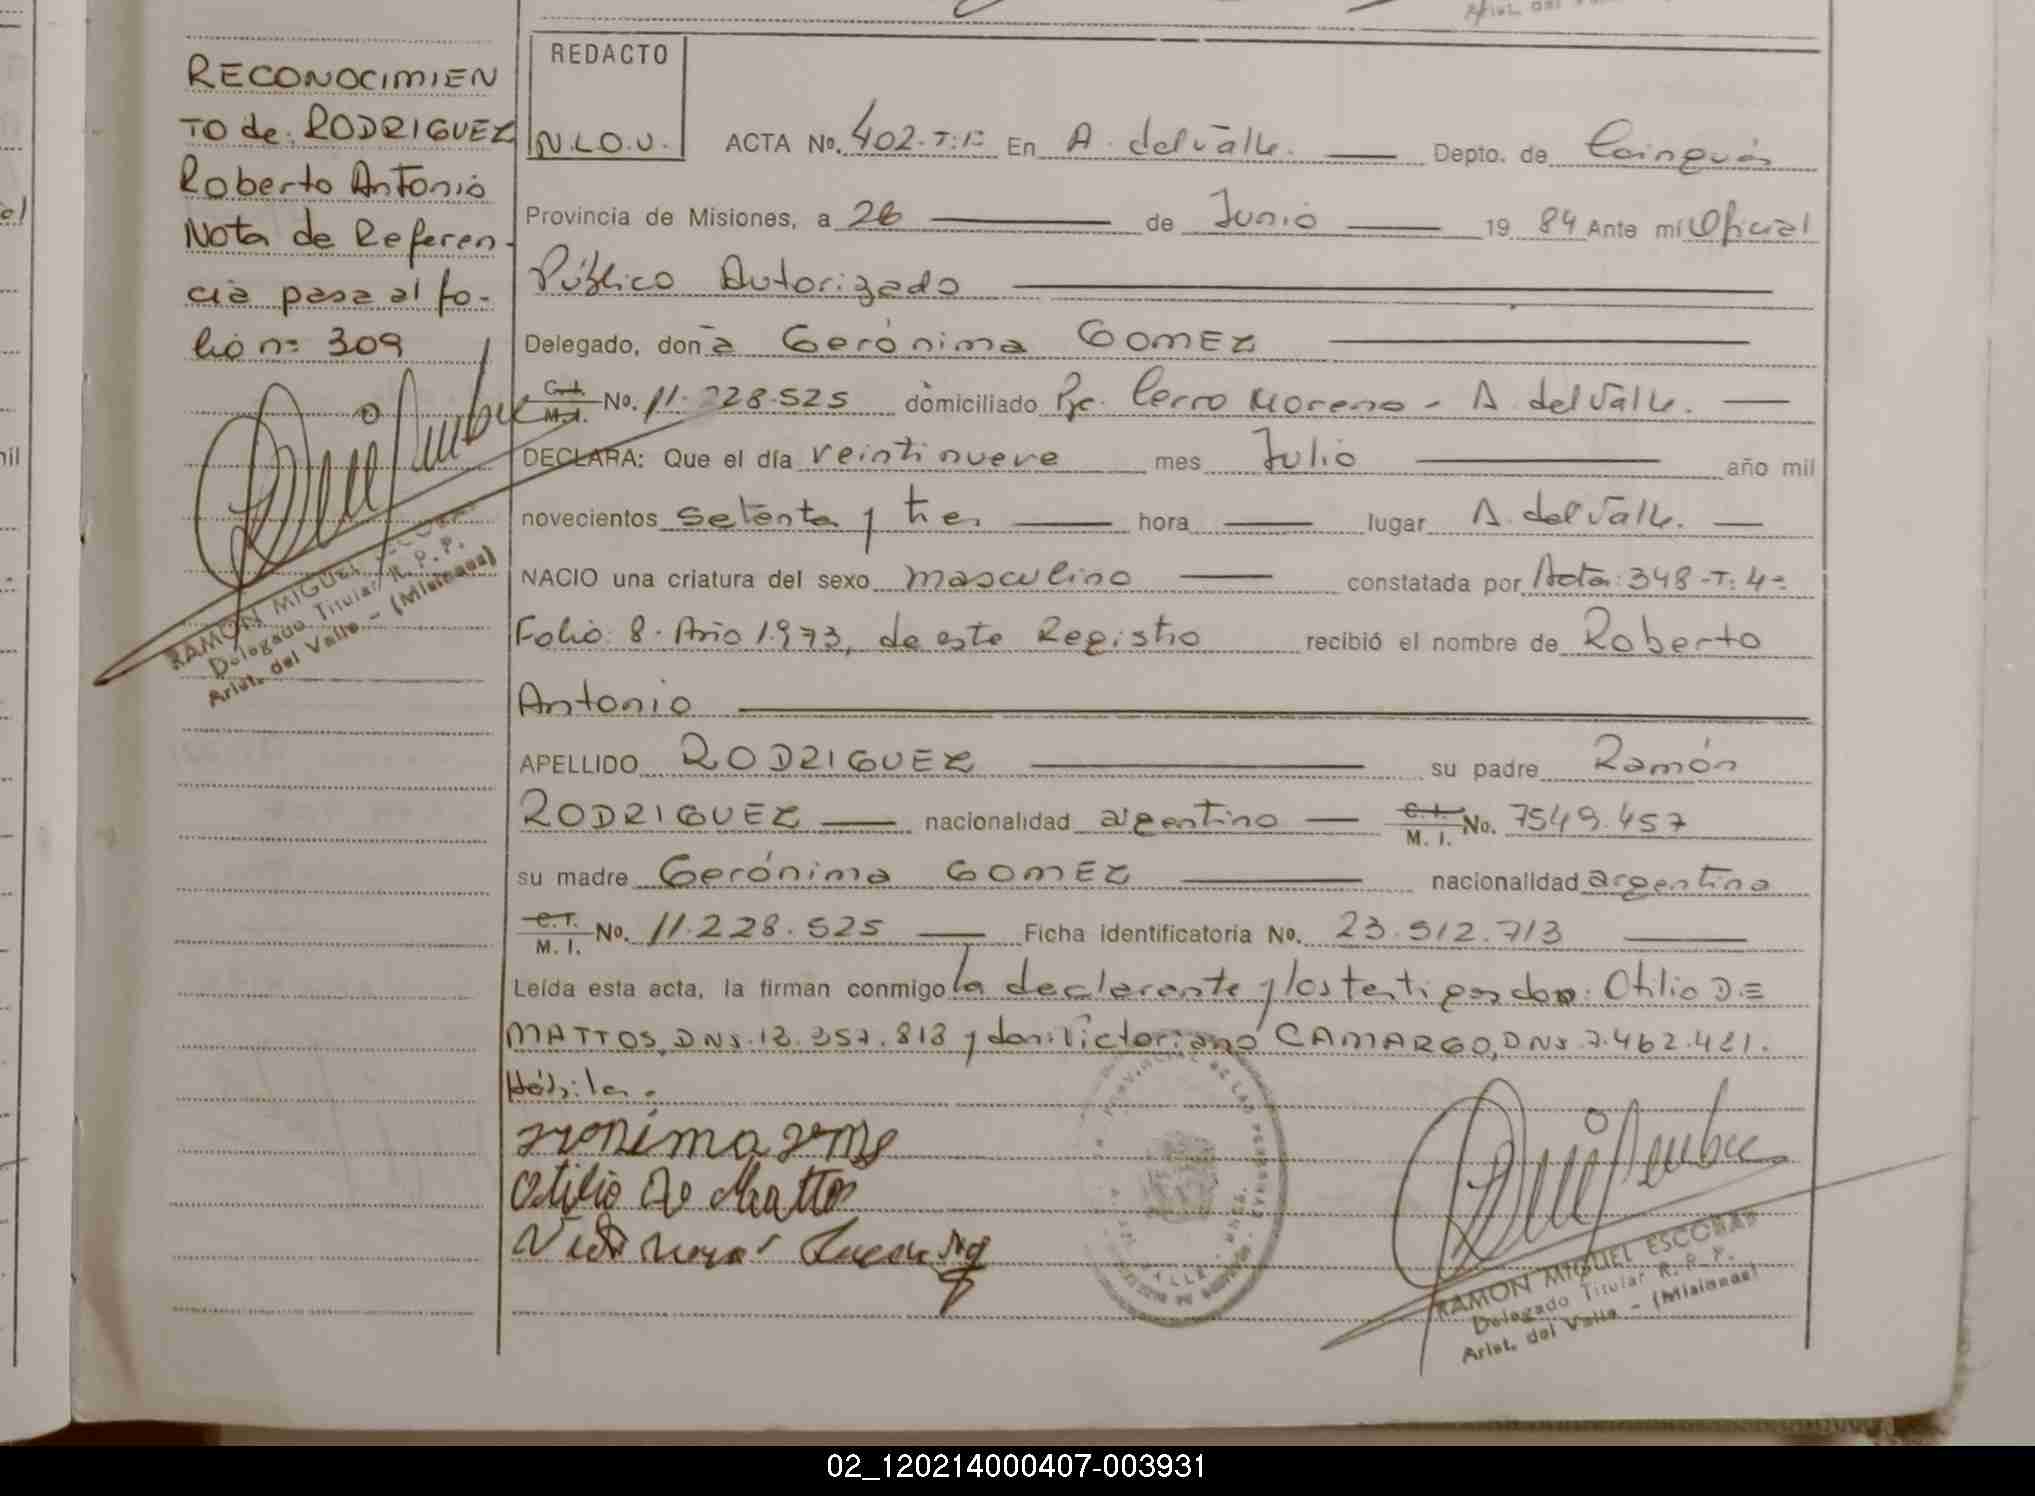 RECONOCIMIEN
TO de: RODRIGUEZ
Roberto Antonio
Nota de Referen-
cia pasa al fo-
lio nº 309
RAMON MIGUEL
Delegado Titular R. P. P.
Arist. del Valle - (Misiones)
REDACTO
N.L.O.U.
ACTA No. 402-T:1º En A. del Valle. Depto. de Cainguás
Provincia de Misiones, a 26 de Junio 19 84 Ante mí Oficial
Público Autorizado
Delegado, doña Gerónima GOMEZ
C.I. M.I. No. 11.228.525 domiciliado Pje. Cerro Moreno - A. del Valle.
DECLARA: Que el día veintinueve mes Julio año mil
novecientos setenta y tres hora lugar A. del Valle.
NACIO una criatura del sexo masculino constatada por Acta: 348-T: 4º
Folio: 8. Año 1.973, de este Registro recibió el nombre de Roberto
Antonio
APELLIDO RODRIGUEZ su padre Ramón
RODRIGUEZ nacionalidad argentino C.I. M. I. No. 7549.457
su madre Gerónima GOMEZ nacionalidad argentina
C.I. M. I. No. 11.228.525 Ficha identificatoria No. 23.512.713
Leída esta acta, la firman conmigo la declarante y los testigos don: Otilio DE
MATTOS, DNI. 13.357.813 y don: Victoriano CAMARGO, DNI. 7.462.421.
Hábiles.
Otilio De Mattos
RAMON MIGUEL ESCOBAR
Delegado Titular R. P. P.
Arist. del Valle - (Misiones)
02_120214000407-003931